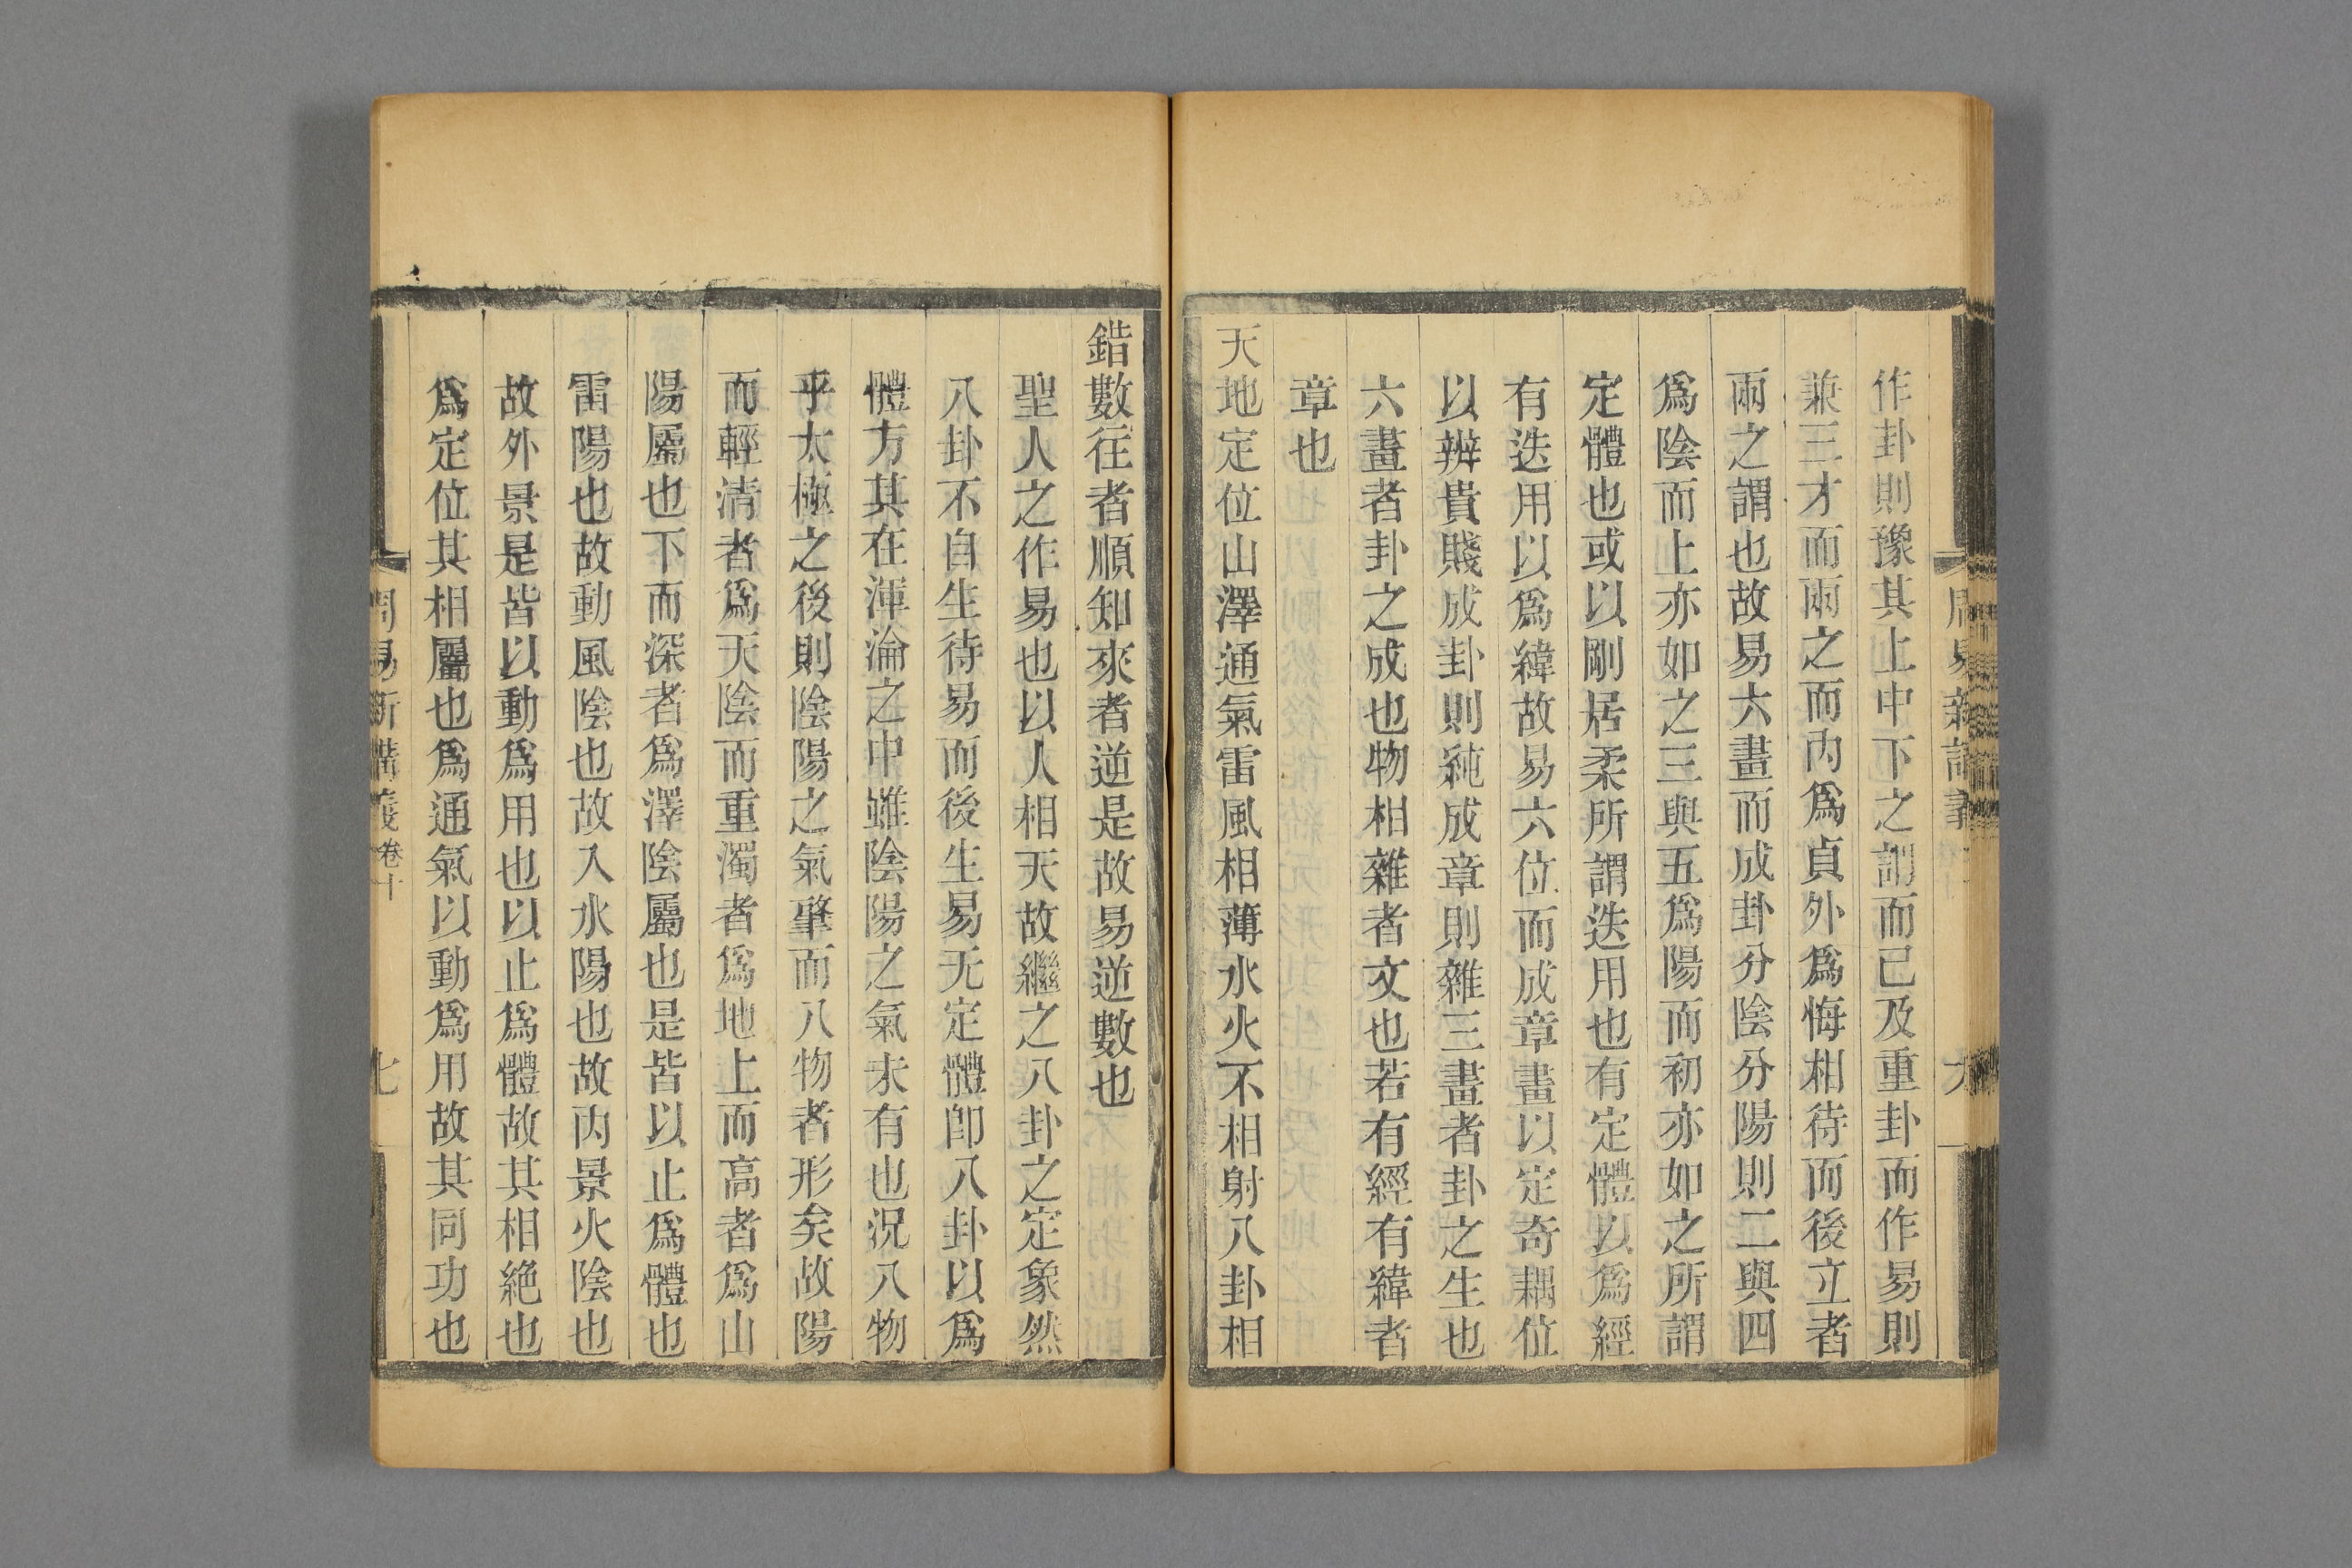 作卦則豫其上中下之謂而已及重卦而作易則
兼三才而兩之而內爲貞外爲悔相待而後立者
兩之謂也故易六畫而成卦分陰分陽則二與四
爲陰而上亦如之三與五爲陽而初亦如之所謂
定體也或以剛居柔所謂迭用也有定體以爲經
有迭用以爲緯故易六位而成章畫以定奇耦位
以辨貴賤成卦則純成章則雜三畫者卦之生也
六畫者卦之成也物相雜者文也若有經有緯者
章也
天地定位山澤通氣雷風相薄水火不相射八卦相
錯數往者順知來者逆是故易逆數也
聖人之作易也以人相天故繼之八卦之定象然
八卦不自生待易而後生易无定體卽八卦以爲
體方其在渾淪之中雖陰陽之氣未有也況八物
乎太極之後則陰陽之氣肇而八物者形矣故陽
而輕清者爲天陰而重濁者爲地上而高者爲山
陽屬也下而深者爲澤陰屬也是皆以止爲體也
雷陽也故動風陰也故入水陽也故內景火陰也
故外景是皆以動爲用也以止爲體故其相絕也
爲定位其相屬也爲通氣以動爲用故其同功也
周易新講義 卷十 七